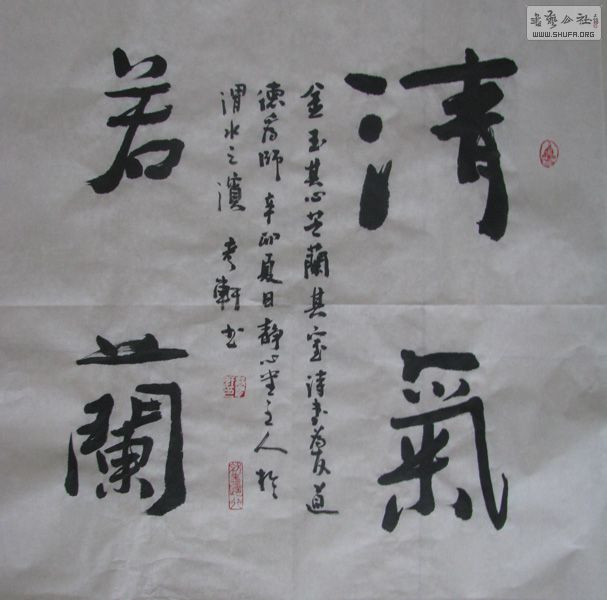 清氣
金玉其心芝蘭其室詩書為友道
德為師 辛卯夏日靜心堂主人於
渭水之濱 軒书
若蘭
書藝公社
WWW.SHUFA.ORG